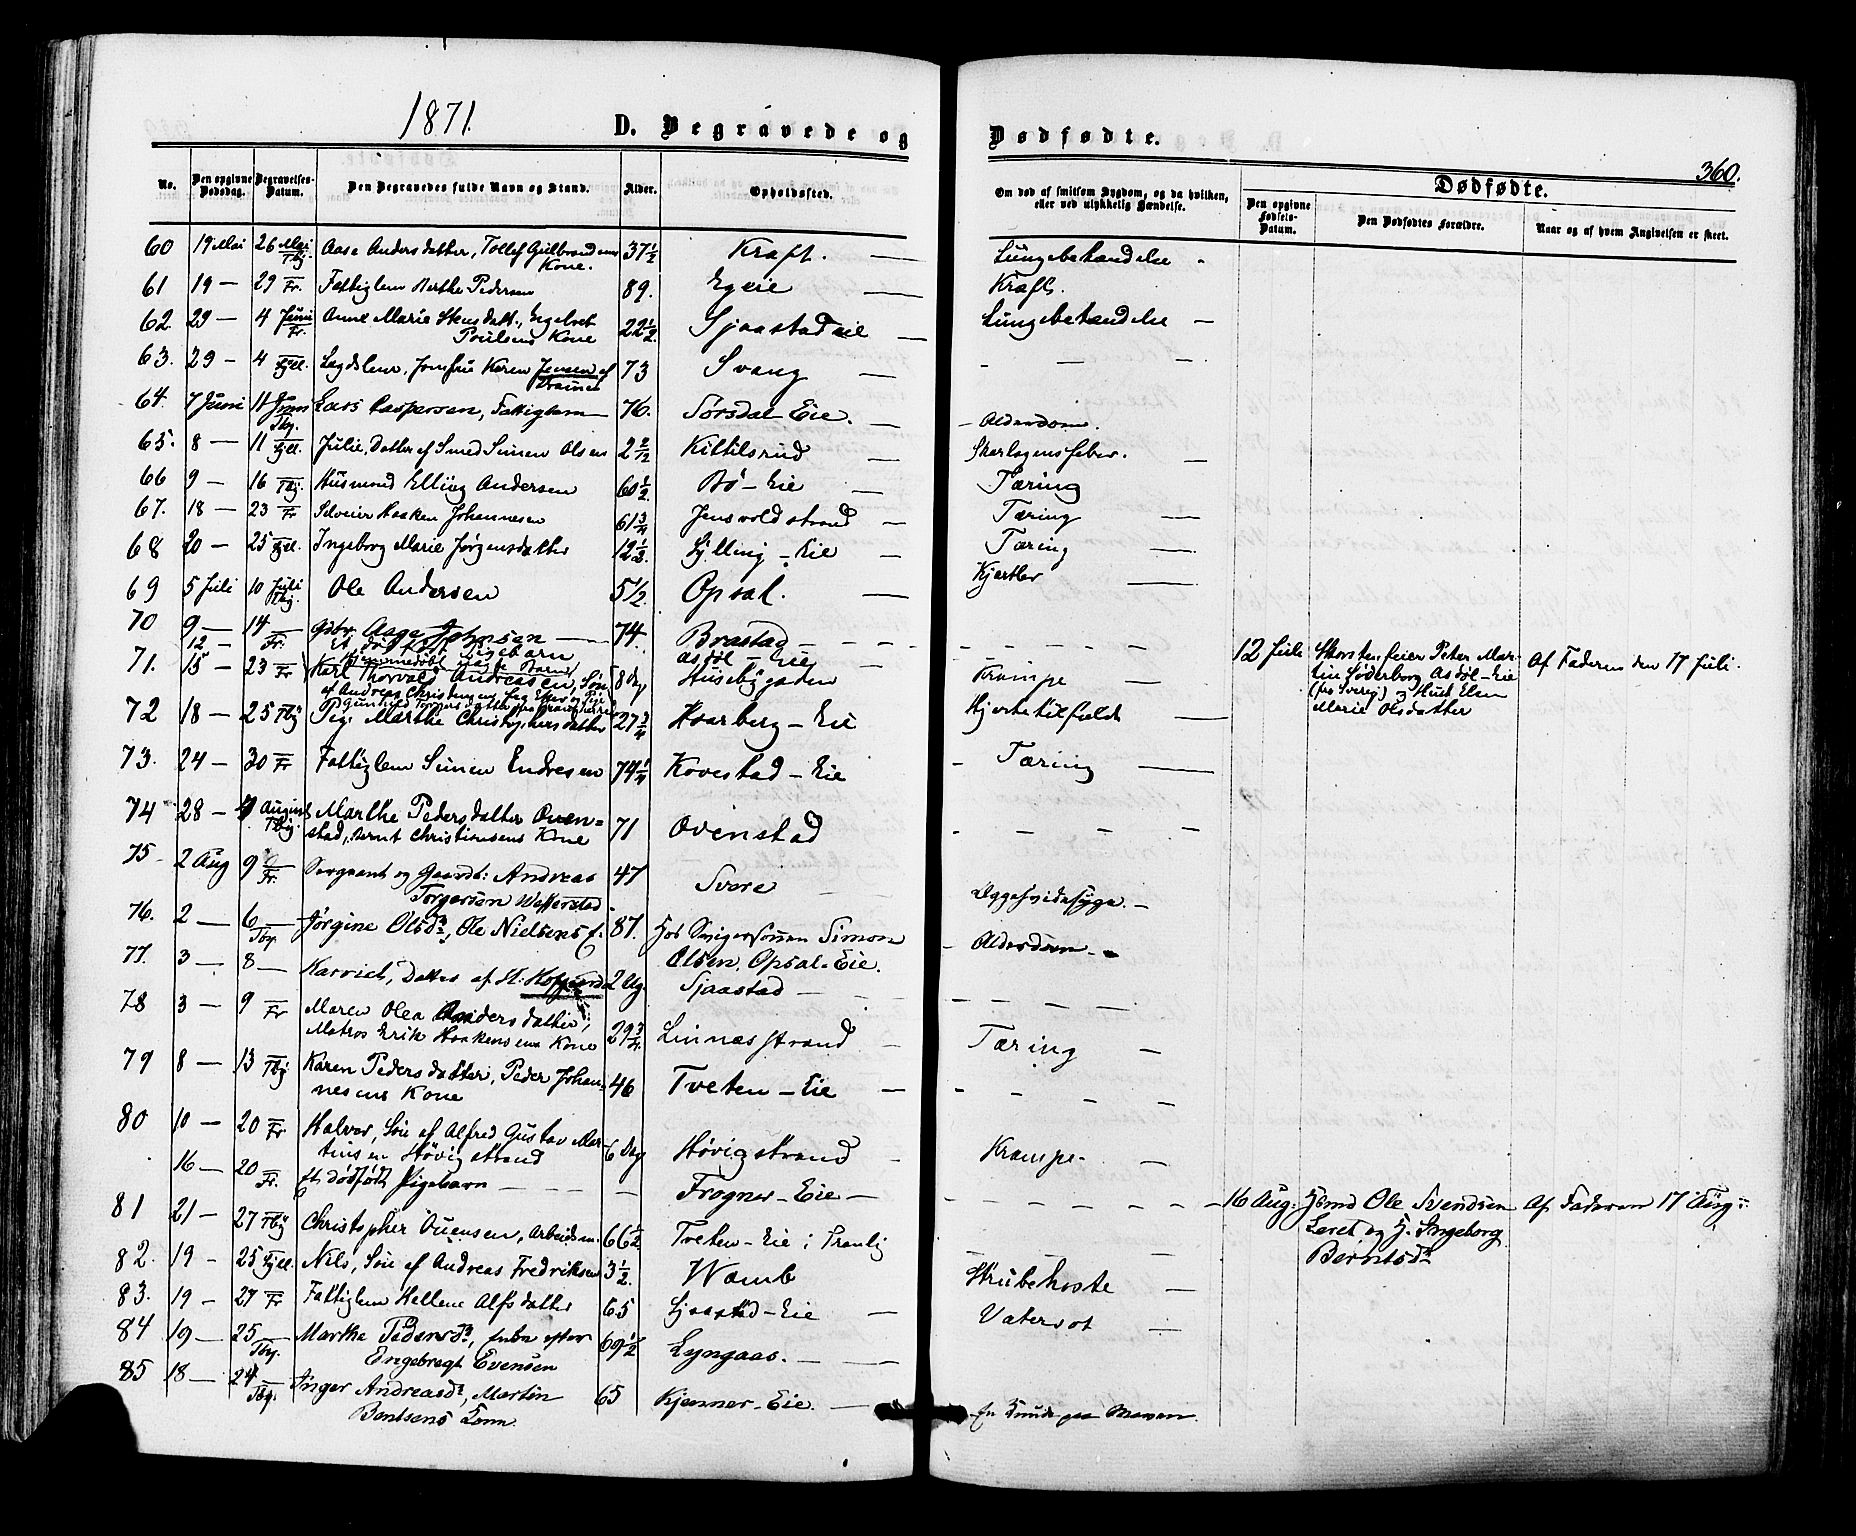 1871.
D. Begravede og
Dødfødte.
360.
No.
Den opgivne Dødsdag.
Begravelses-Datum.
Den Begravedes fulde Navn og Stand.
Alder.
Opholdssted.
Om død af smitsom Sygdom, og da hvilken, eller ved ulykkelig Hændelse.
Dødfødte.
Den opgivne Fødsels-Datum.
Den Dødfødtes Forældre.
Naar og af hvem Angivelsen er skeet.
60 19 Mai 26 Mai Tbj. Aase Andersdatter, Tollef Gulbrandsens Kone. 37 1/2 Kraft. — Lungebetændelse
61 19 — 29 Fr. Fattiglem Berthe Pedersen 89. Egeie — Kræft.
62. 29 — 4 Juni Fr. Anne Marie Stensdatt., Engebret Poulsens Kone 22 1/2. Sjaastadeie — Lungebetændelse —
63. 29 — 4 — Sjell. Lægdslem, Jomfru Karen Jensen af Dramen 73 Svang — — —
64. 7 Juni 11 Juni Tbj. Lars Caspersen, Fattiglem 76. Sørsdal Eie. — Alderdom.
65. 8 — 11 Sjell. Julie, Datter af Smed Simen Olsen 2 2/12 Kittilsrud — Skarlagensfeber. —
66 9 — 16 Tbj. Husmand Elling Andersen 60 1/2. Bö — Eie — Tæring
67. 18 — 23 Fr Selveier Haaken Johannesen 61 3/4 Jensvoldstrand — Tæring —
68 20 — 25 Sjell. Ingeborg Marie Jørgensdatter 12 1/3. Gjilling — Eie — Tæring —
69 5 Juli 10 Juli Tbj. Ole Andersen 5 1/2. Opsal. — Kjertler —
70 9 — 14 — Fr. Gdbr. Aage Johnsen — 74. Brastad — — —
12 — Et dødfødt Pigebarn Asdøl — Eie — 12 Juli Skorstensfeier Peter Martin Søderborg Asdøl-Eie (fra Sverig) og Hust Elen Marie Olsdatter Af Faderen den 17 Juli.
71. 15 — 23 Fr Hjemmedøbt uægte Barn
Karl Thorvald Andreassen, Søn 8 Dag Husebygaden Krampe —
af Andreas Christensen
72 18 — 25 Tbj Pig. Marthe Christophersdatter 27 3/4 Haarberg — Eie Hjertetilfælde —
73. 24 — 30 Fr Fattiglem Simen Endresen 74 1/4 Kovestad — Eie — Tæring —
74 28 — 4 August Tbj. Marthe Pedersdatter Ovenstad, Bernt Christiansens Kone 71 Ovenstad — — —
75. 2 Aug 9 — Fr. Sergeant og Gaardb: Andreas Torgersen Wefferstad 47 Svere — Ryggehvidesyge. —
76. 2 — 6 — Tbj. Jørgine Olsdr, Ole Nielsens E. 87. Hos Svigersønnen Simon Olsen, Opsal-Eie. Alderdom —
77. 3 — 8 — Harriet, Datter af H: Hofgaard 2 Ug. Sjaastad — — —
78 3 — 9 Fr Maren Olea Andersdatter, Matros Erik Haakensens Kone 29 3/4. Linnesstrand — Tæring —
79 8 — 13 Tbj Karen Pedersdatter, Peder Johannesens Kone 46 Tveten — Eie — — —
80 10 — 20 Fr Halvor, Søn af Alfred Gustav Martinsen Høvigstrand 6 Dag Høvigstrand — Krampe. —
16 — 20 — Fr. Et dødfødt Pigebarn — — — Frogner — Eie — — — 16 Aug. Hsmd Ole Svendsen Leret og H. Ingeborg Berntsdr Af Faderen 17 Aug:
81 21 — 27 Tbj Christopher Ouensen, Arbeidsm. 66 1/2 Tveten — Eie i Tranby —
82. 19 — 25 Sjell. Nils, Søn af Andreas Fredriksen 3 1/2. Wamb Strubehoste —
83. 19 — 27 Fr Fattiglem Hellene Alfsdatter 65 Sjaastad — Eie — Vatersot —
84 19 — 25 — Tbj. Marthe Pedersdr, Enke efter Engebregt Evensen 69 1/2 Lyngaas. — —
85 18 — 24 — Tbj. Inger Andreasdr, Martin Bentsens Kone. 65 Kjenner — Eie. — En Knude paa Maven.